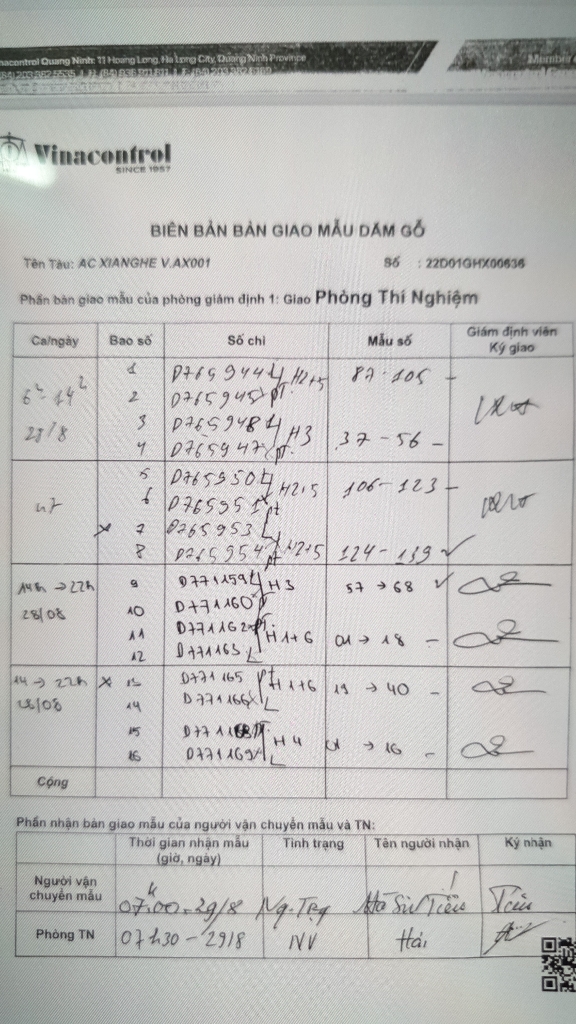 Vinacontrol Quang Ninh: 11 Hoang Long, Ha Long City, Quang Ninh Province
Member
Vinacontrol
SINCE 1957
BIÊN BẢN BÀN GIAO MẪU DĂM GỖ
Tên Tàu: AC XIANGHE V.AX001 Số : 22D01GHX00636
Phần bàn giao mẫu của phòng giám định 1: Giao Phòng Thí Nghiệm
Ca/ngày Bao số Số chì Mẫu số Giám định viên Ký giao
6h-14h 28/8
1 D765944 L H2+5 87-105 -
2 D765945 pt
3 D765948 L H3
4 D765947 pt 37-56 -
5 D765950 L H2+5 106-123 -
6 D765951 pt
x 7 D765953 L
8 D765954 pt H2+5 124-139 ✓
14h → 22h 9 D771159 L H3 57 → 68 ✓
28/08 10 D771160
11 D771162 PT H1+6 01 → 18 -
12 D771163 L
14 → 22h x 13 D771165 PT H1+6 19 → 40 -
28/08 14 D771166 L
15 D771168 PT H4 01 → 16 -
16 D771169 L
Cộng
Phần nhận bàn giao mẫu của người vận chuyển mẫu và TN:
Thời gian nhận mẫu (giờ, ngày) Tình trạng Tên người nhận Ký nhận
Người vận chuyển mẫu 07h00-29/8 Ng.Trg Hà Sĩ Tiến Tiến
Phòng TN 07h30-29/8 NV Hải